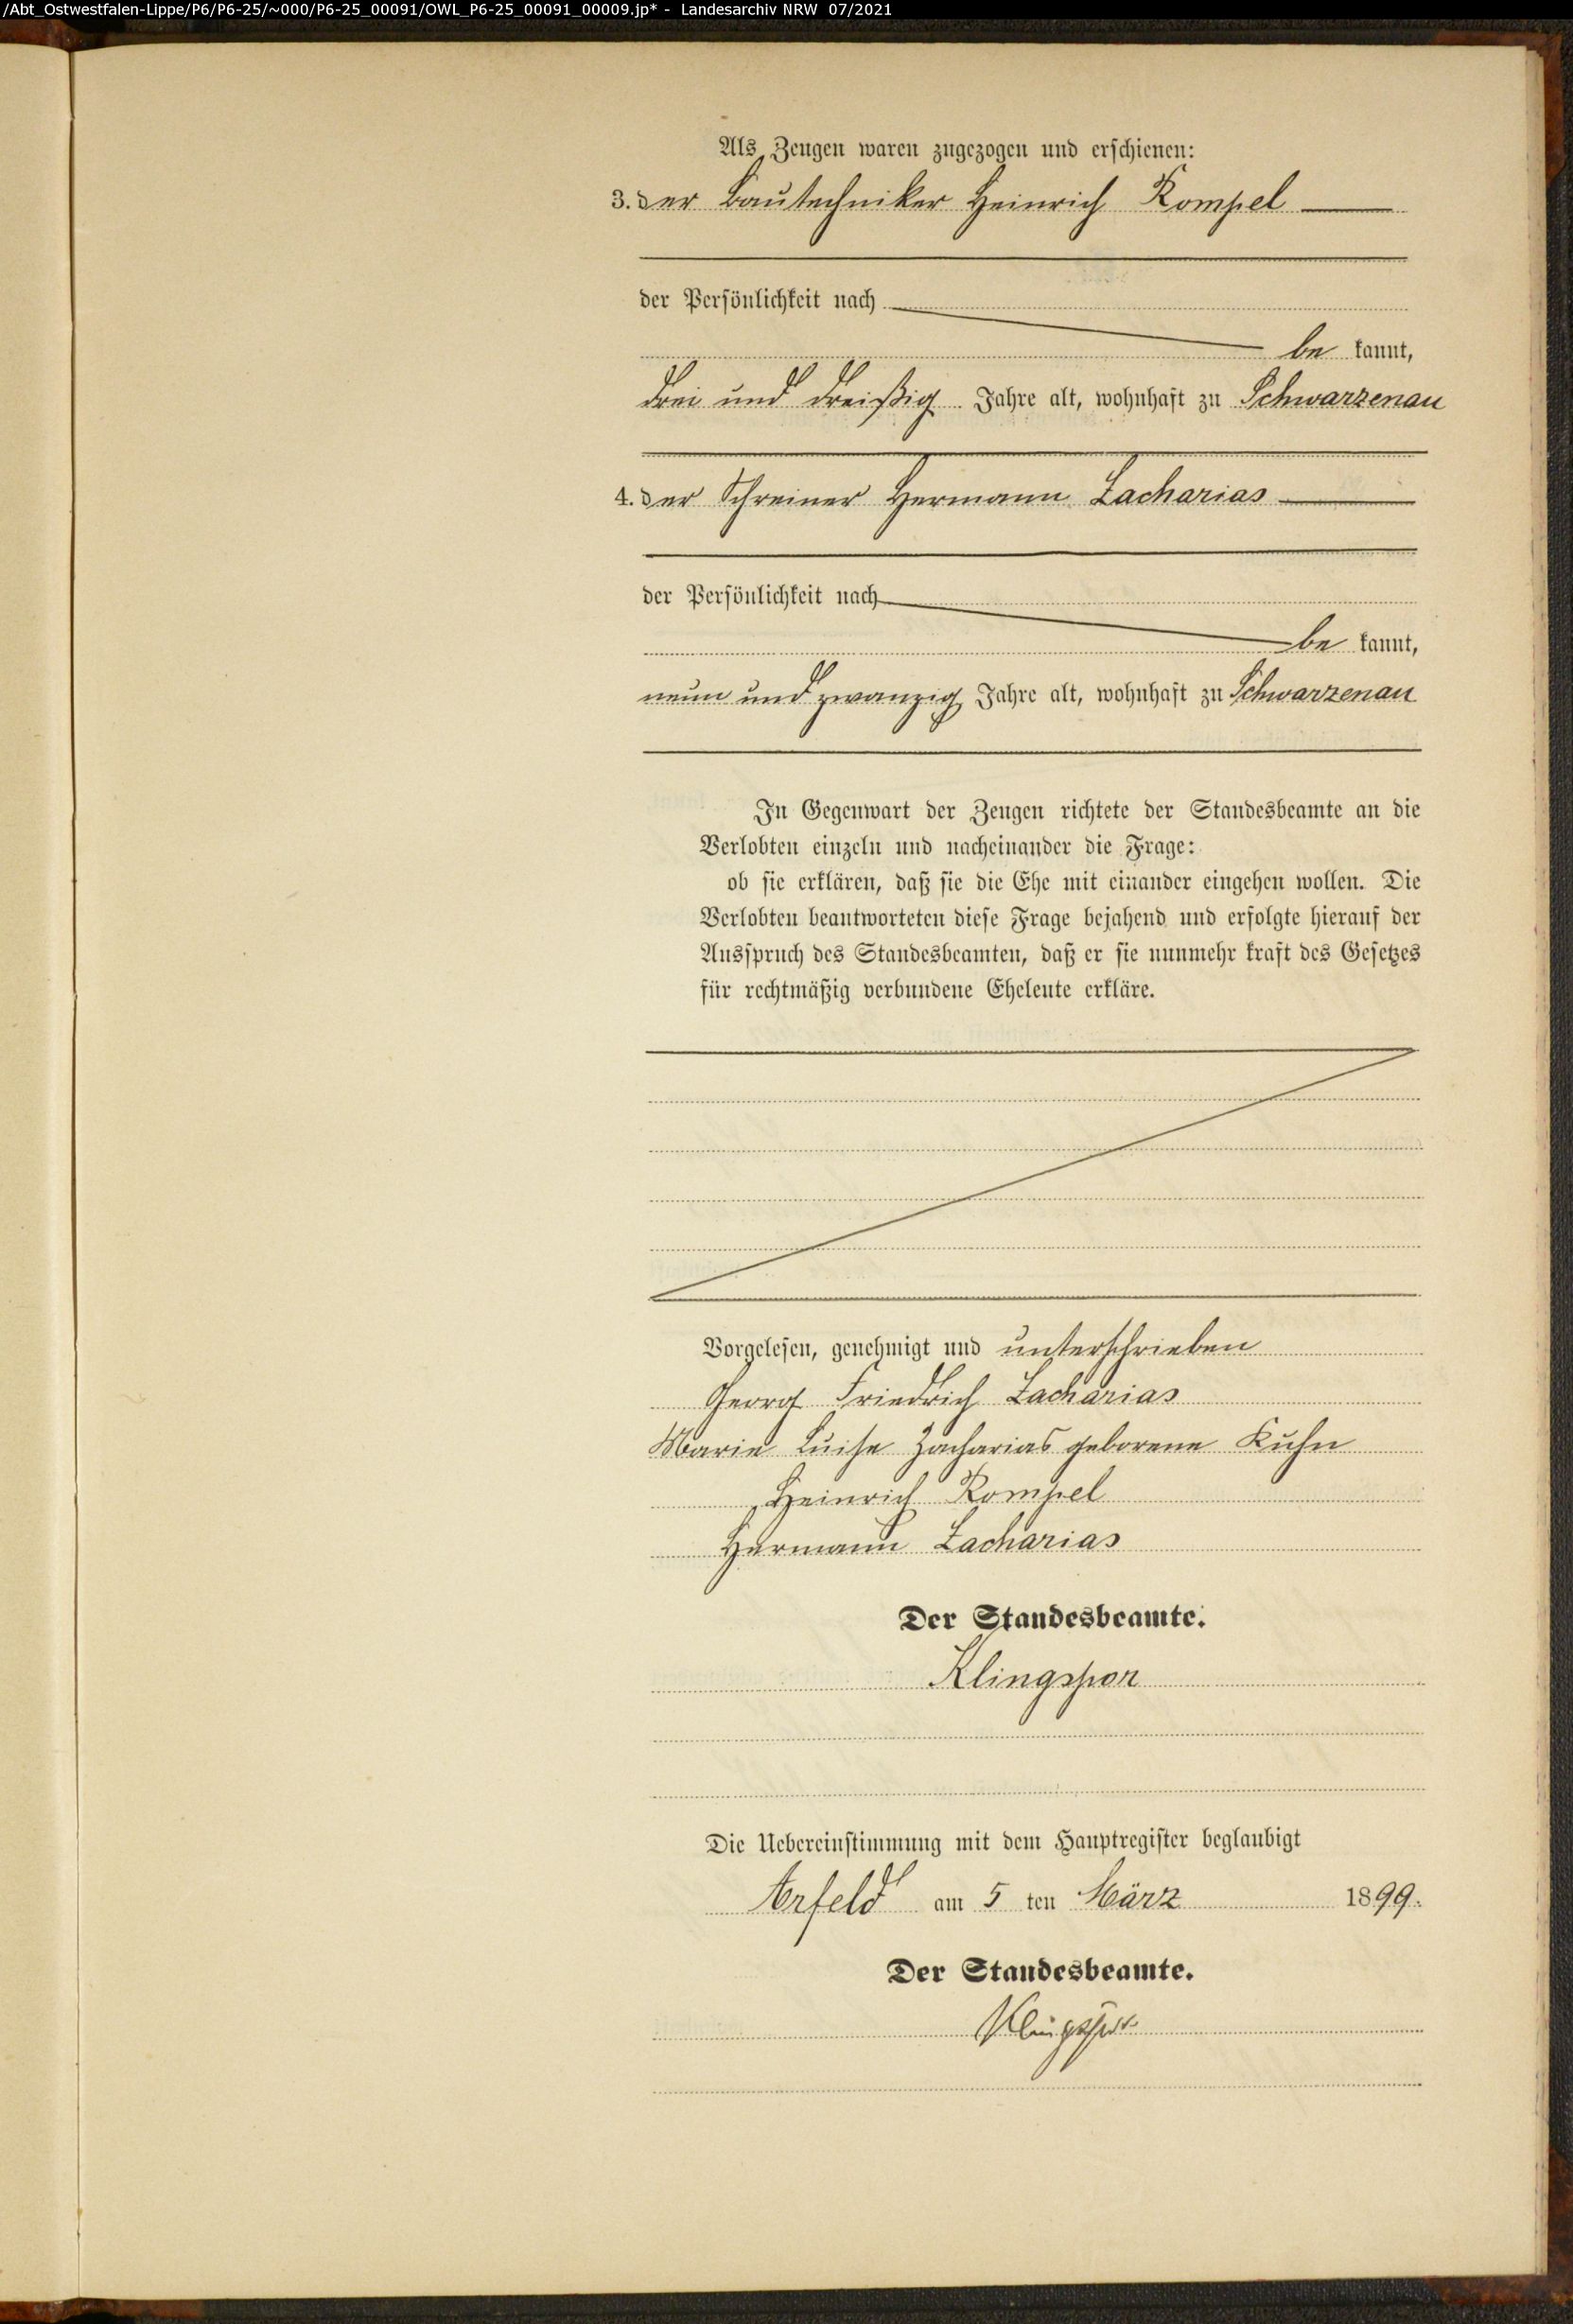 /Abt_Ostwestfalen-Lippe/P6/P6-25/~000/P6-25_00091/OWL_P6-25_00091_00009.jp* - Landesarchiv NRW 07/2021
Als Zeugen waren zugezogen und erschienen:
3. der Bautechniker Heinrich Rompel
der Persönlichkeit nach
be kannt,
drei und dreißig Jahre alt, wohnhaft zu Schwarzenau
4. der Schreiner Hermann Zacharias
der Persönlichkeit nach
be kannt,
neun und zwanzig Jahre alt, wohnhaft zu Schwarzenau
In Gegenwart der Zeugen richtete der Standesbeamte an die
Verlobten einzeln und nacheinander die Frage:
ob sie erklären, daß sie die Ehe mit einander eingehen wollen. Die
Verlobten beantworteten diese Frage bejahend und erfolgte hierauf der
Ausspruch des Standesbeamten, daß er sie nunmehr kraft des Gesetzes
für rechtmäßig verbundene Eheleute erkläre.
Vorgelesen, genehmigt und unterschrieben
Georg Friedrich Zacharias
Marie Luise Zacharias geborene Kuhn
Heinrich Rompel
Hermann Zacharias
Der Standesbeamte.
Klingspor
Die Uebereinstimmung mit dem Hauptregister beglaubigt
Arfeld am 5 ten März 1899.
Der Standesbeamte.
Klingspor